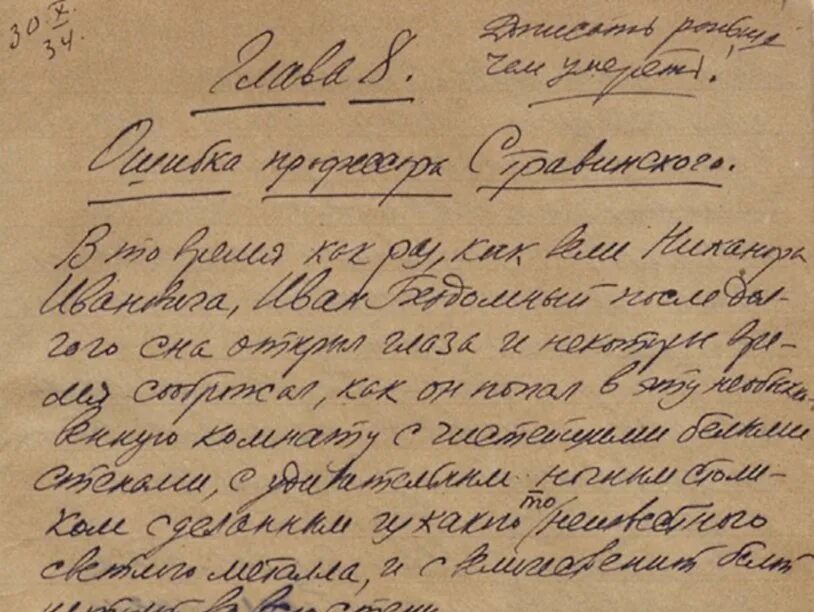 30 X
34.
Дописать раньше
чем умереть!
Глава 8.
Ошибка профессора Стравинского.
В то время как раз, как вели Никанора
Ивановича, Иван Бездомный после дол-
гого сна открыл глаза и некоторое вре-
мя соображал, как он попал в эту необык-
венную комнату с чистейшими белыми
стенами, с удивительным ночным столи-
ком сделанным из какого то неизвестного
светлого металла, и с величественной белой